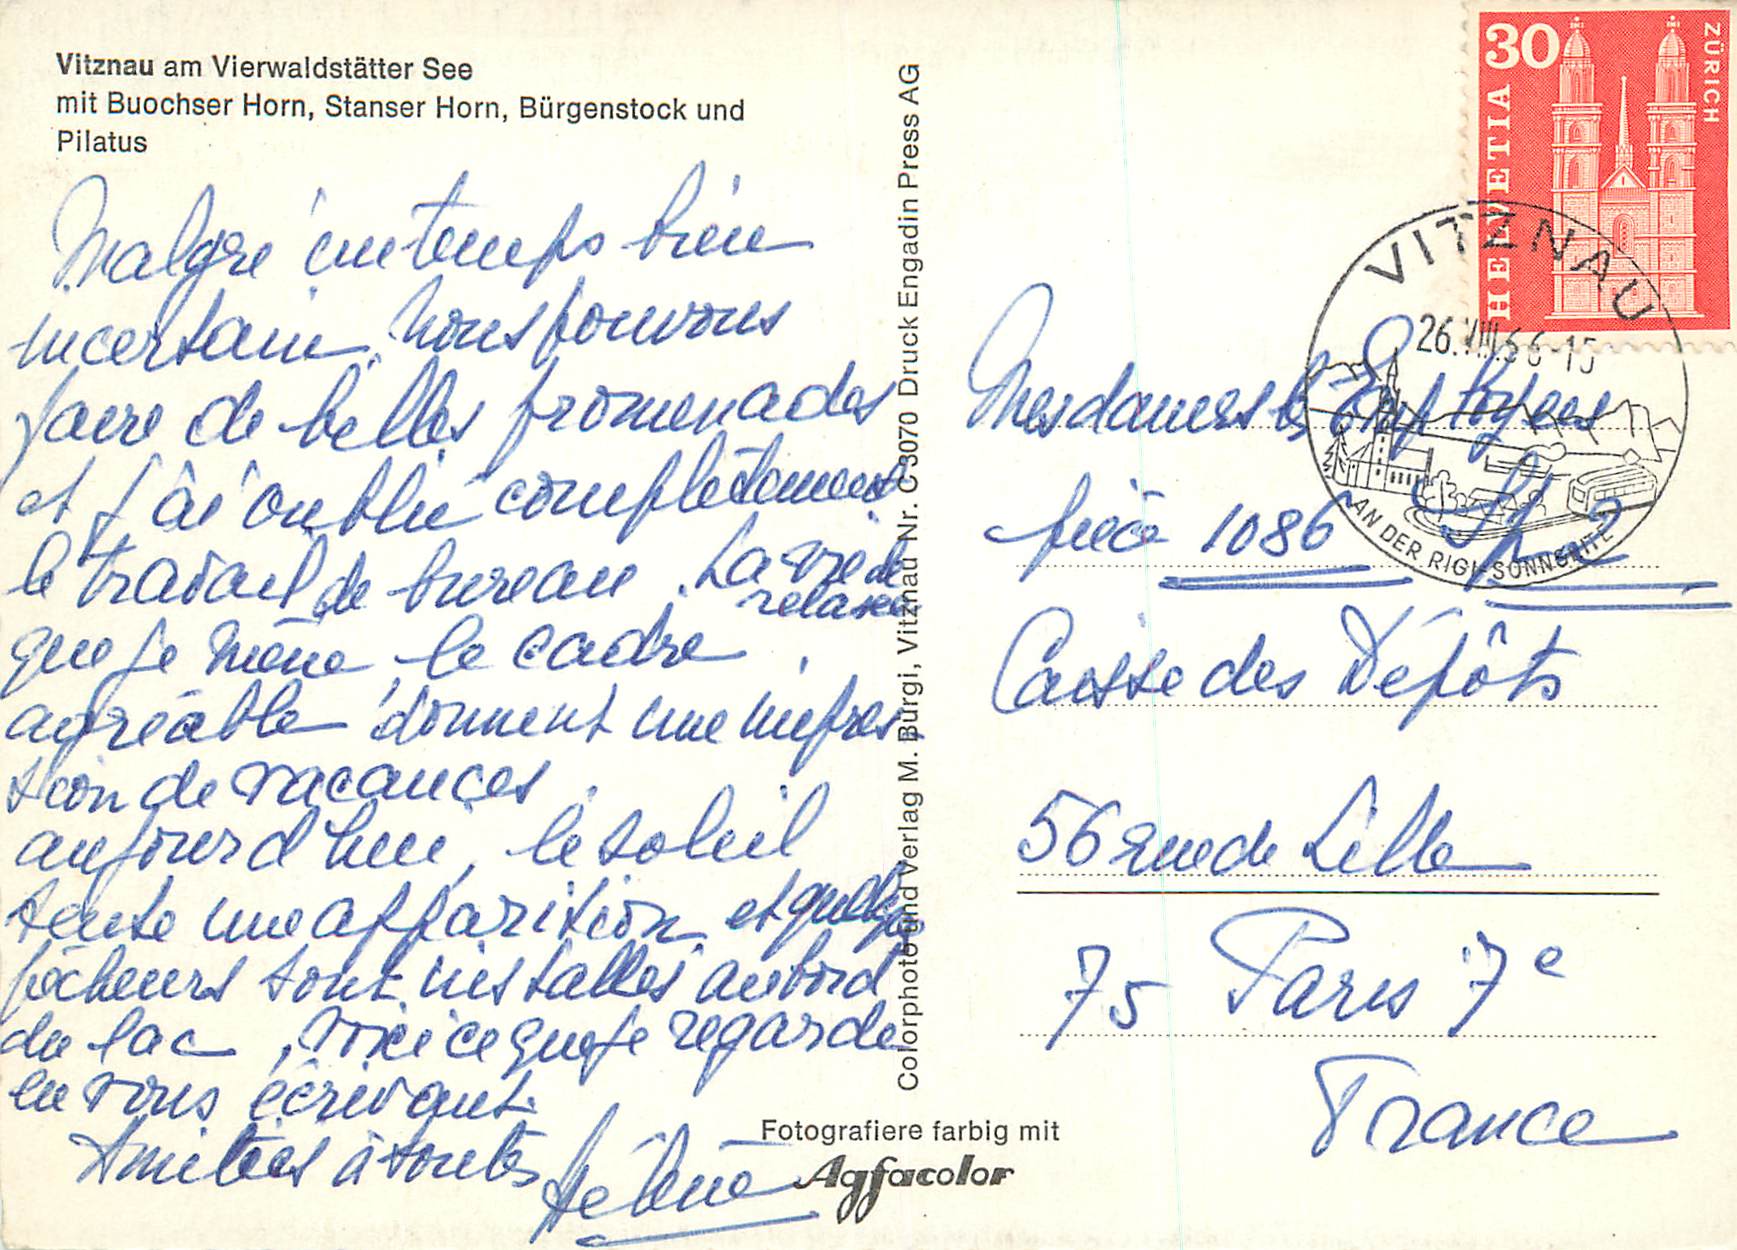 Vitznau am Vierwaldstätter See
mit Buochser Horn, Stanser Horn, Bürgenstock und
Pilatus
Malgré un temps bien
incertain, nous pouvons
faire de belles promenades
et j'ai oublié complètement
le travail de bureau. La vie de
relaxe
que je mène, le cadre
agréable donnent une impres
sion de vacances.
aujourd'hui, le soleil
tente une apparition et quelques
pêcheurs sont installés au bord
du lac, voici ce que je regarde
en vous écrivant.
Amitiés à toutes
Hélène
Colorphoto und Verlag M. Bürgi, Vitznau Nr. C 3070 Druck Engadin Press AG
Fotografiere farbig mit
Agfacolor
30
HELVETIA
ZÜRICH
VITZNAU
26.VIII.66-15
AN DER RIGI-SONNSEITE
Mesdames les Employées
pièce 1086
Caisse des Dépôts
56 rue de Lille
75 Paris 7e
France